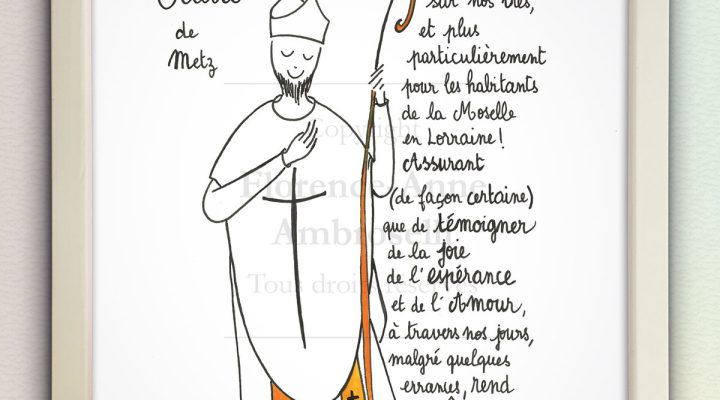 de
Metz
sur nos vies,
et plus
particulièrement
pour les habitants
de la Moselle
en Lorraine !
Assurant
(de façon certaine)
que de témoigner
de la joie
de l'espérance
et de l'Amour,
à travers nos jours,
malgré quelques
errances, rend
Copyright
Florence-Anne
Ambroselli
Tous droits réservés